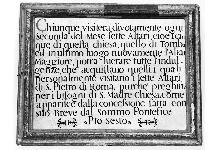 Chiunque visiterà divotamente ogni
seconda del Mese sette Altari cioè cin-
que di questa chiesa, quello di Tomba
ed in ultimo luogo nuovamente l'Altar
Maggiore, potrà lucrare tutte l'indul-
genze che acquistano quelli, quali
Personalmente visitano i sette Altari
di S. Pietro di Roma, purchè preghino
per i bisogni di S. Madre Chiesa come
apparisce dalla concessione fatta con
suo Breve dal Sommo Pontefice
Pio Sesto